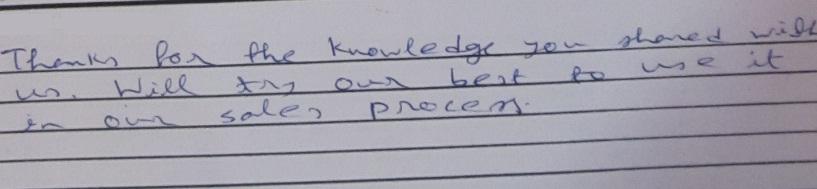 Thanks for the knowledge you shared with
us. Will try our best to use it
in our sales process.